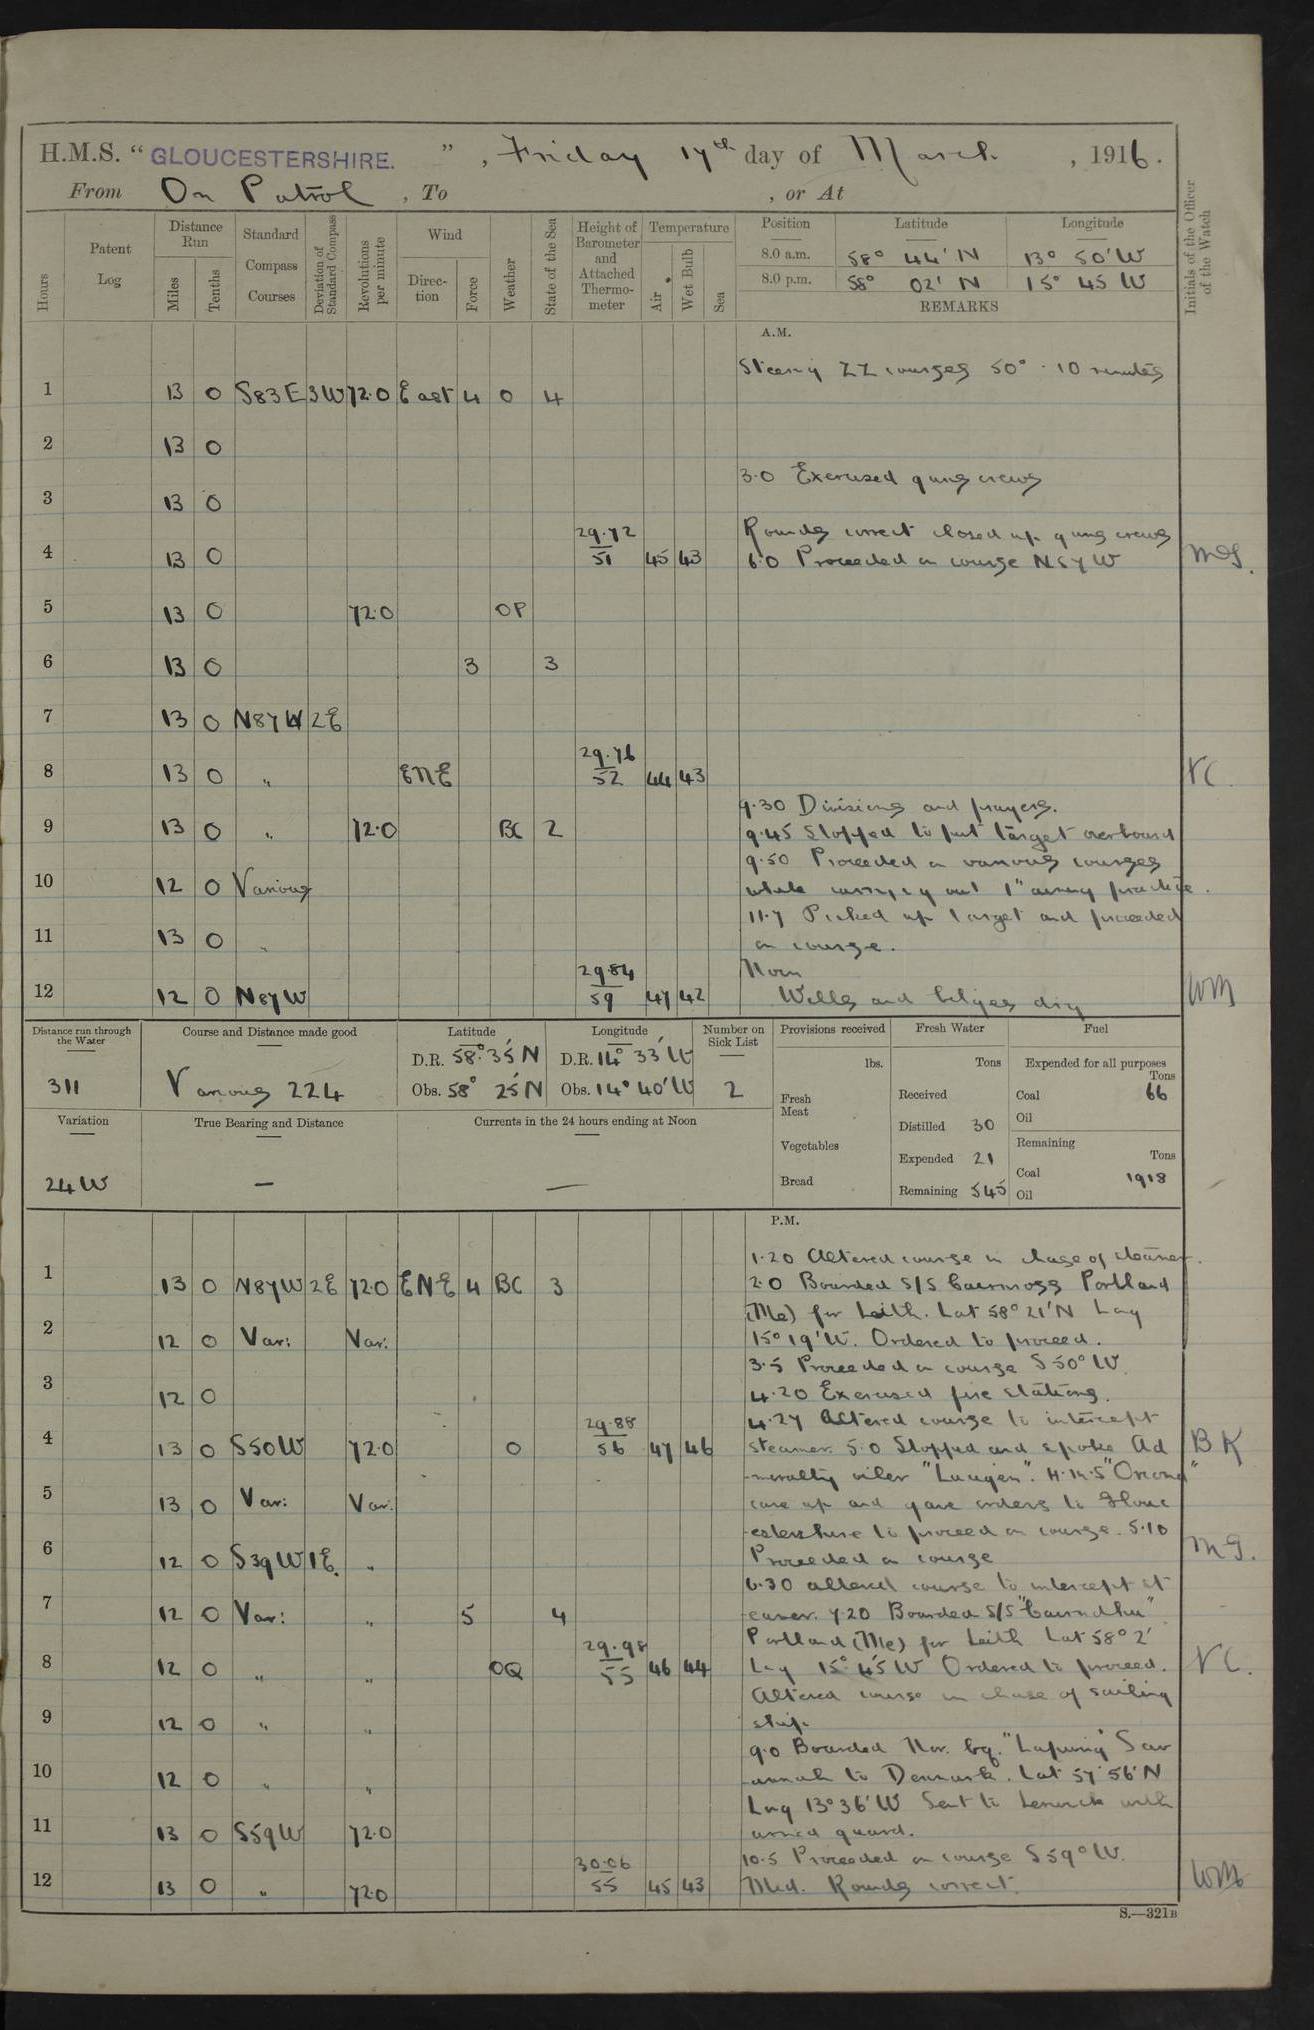 H.M.S. " GLOUCESTERSHIRE. " , Friday 17th day of March , 1916.
From On Patrol , To , or At
Hours
Patent Log
Distance Run
Miles
Tenths
Standard Compass Courses
Deviation of Standard Compass
Revolutions per minute
Wind
Direction
Force
Weather
State of the Sea
Height of Barometer and Attached Thermometer
Temperature
Air
Wet Bulb
Sea
Position Latitude Longitude
8.0 a.m. 58° 44' N 13° 50' W
8.0 p.m. 58° 02' N 15° 45 W
REMARKS
Initials of the Officer of the Watch
A.M.
Steering ZZ courses 50° · 10 minutes
1 13 0 S83E 3W 72.0 East 4 0 4
2 13 0
3.0 Exercised guns crews
3 13 0
Rounds correct closed up guns crews
4 13 0 29.72 51 45 43 6.0 Proceeded on course N87W
5 13 0 72.0 OP
6 13 0 3 3
7 13 0 N87W 2E
8 13 0 " ENE 29.76 52 44 43
9.30 Divisions and prayers.
9 13 0 " 72.0 BC 2 9.45 Stopped to put target overboard
9.50 Proceeded on various courses
10 12 0 Various while carrying out 1" aiming practice.
11.7 Picked up target and proceeded
11 13 0 " on course.
Noon
12 12 0 N87W 29.84 59 47 42 Wells and bilges dry
Distance run through the Water
311
Course and Distance made good
Various 224
Latitude
D.R. 58° 35' N
Obs. 58° 25' N
Longitude
D.R. 14° 33' W
Obs. 14° 40' W
Number on Sick List
2
Provisions received
lbs.
Fresh Meat
Vegetables
Bread
Fresh Water
Tons
Received
Distilled 30
Expended 21
Remaining 545
Fuel
Expended for all purposes
Tons
Coal 66
Oil
Remaining
Tons
Coal 1918
Oil
Variation
24W
True Bearing and Distance
—
Currents in the 24 hours ending at Noon
—
P.M.
1.20 Altered course in chase of steamer.
1 13 0 N87W 2E 72.0 ENE 4 BC 3 2.0 Boarded S/S Cairnross Portland
(Me) for Leith. Lat 58° 21' N Lng
2 12 0 Var: Var: 15° 19' W. Ordered to proceed.
3.5 Proceeded on course S 50° W.
3 12 0 4.20 Exercised fire stations.
4.27 Altered course to intercept
4 13 0 S50W 72.0 0 29.88 56 47 46 steamer. 5.0 Stopped and spoke Ad B K
-miralty oiler. H.M.S "Orcoma"
5 13 0 Var: Var. came up and gave orders to Glouc
-estershire to proceed on course. 5.10
6 12 0 S39W 1E. " Proceeded on course
6.30 altered course to intercept st
7 12 0 Var: " 5 4 -eamer. 7.20 Boarded S/S "Cairndhu"
Portland (Me) for Leith Lat 58° 2'
8 12 0 " " OQ 29.98 55 46 44 Lng 15° 45' W Ordered to proceed.
Altered course in chase of sailing
9 12 0 " " ship.
9.0 Boarded Nor. bq. "Lapwing" Sav
10 12 0 " " -annah to Denmark. Lat 57° 56' N
Lng 13° 36' W Sent to Lerwick with
11 13 0 S59W 72.0 armed guard.
10.5 Proceeded on course S 59° W.
12 13 0 " 72.0 30.06 55 45 43 Mid. Rounds correct.
S.—321B